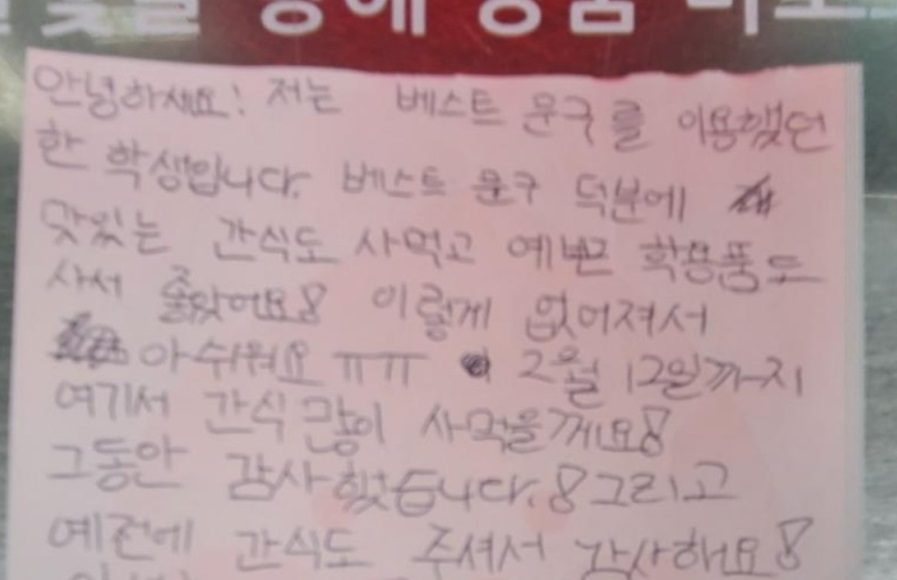 통해 상품
안녕하세요! 저는 베스트 문구를 이용했던
한 학생입니다. 베스트 문구 덕분에
맛있는 간식도 사먹고 예쁜 학용품도
사서 좋았어요! 이렇게 없어져서
아쉬워요 ㅠㅠ 2월 12일까지
여기서 간식 많이 사먹을께요!
그동안 감사했습니다.! 그리고
예전에 간식도 주셔서 감사해요!